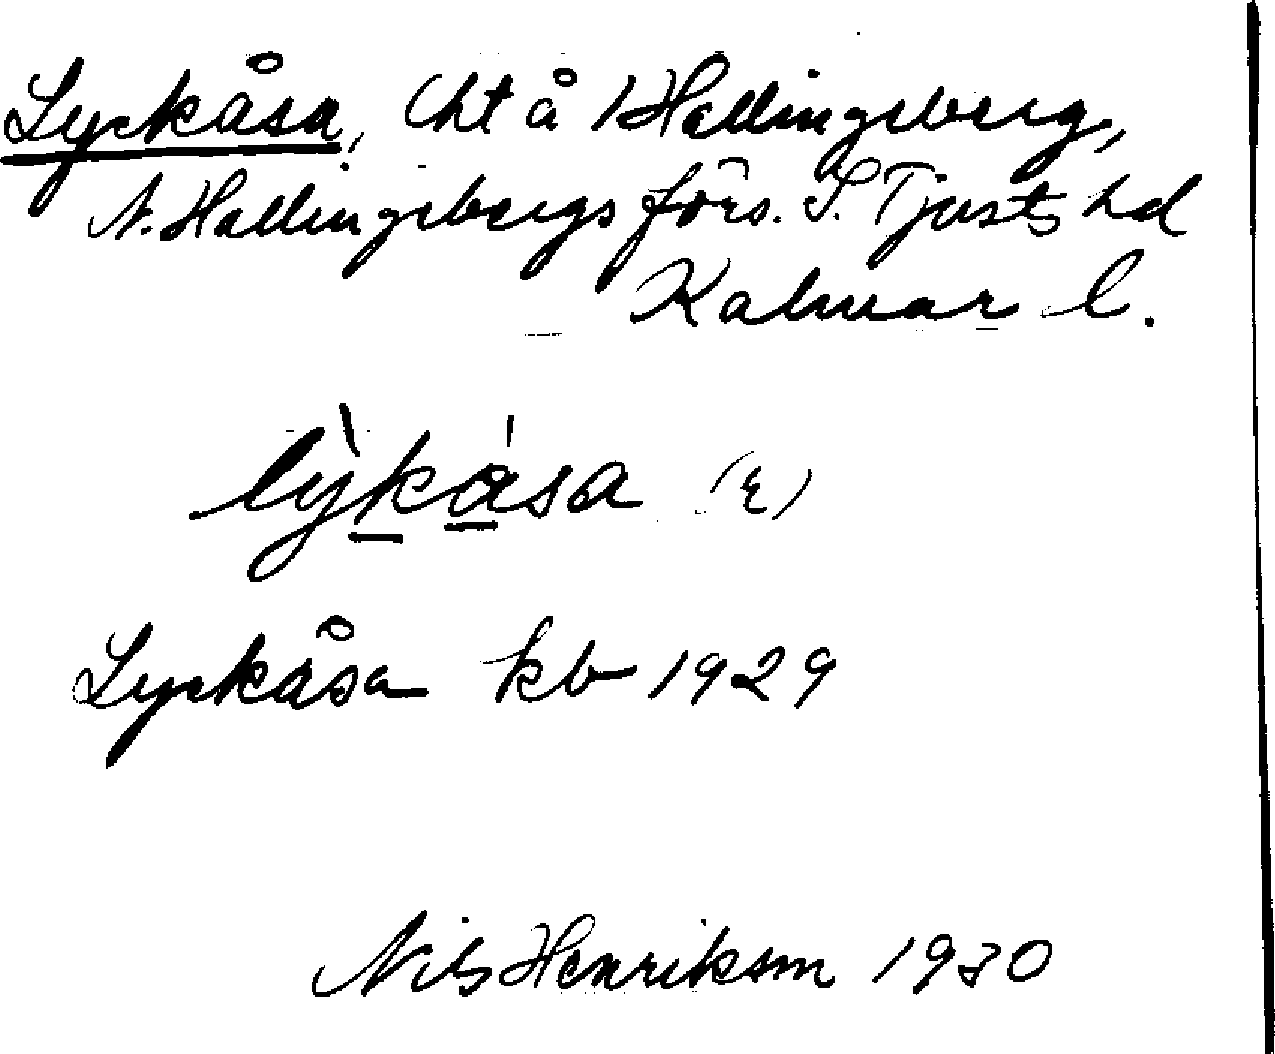 Lyckåsa, lht å 1 Hallingeberg,
N. Hallingebergs förs. S. Tjusts hd
Kalmar l.
lỳkása (ε)
Lyckåsa kb 1929
Nils Henrikson 1930